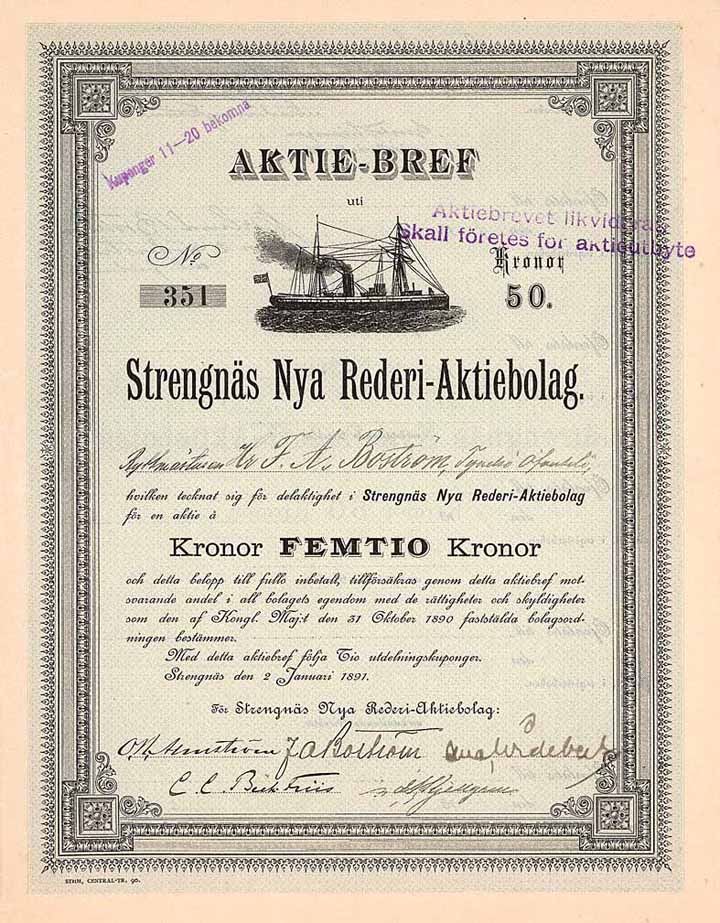 Kuponger 11—20 bekomna
AKTIE-BREF
uti
Aktiebrevet
Skall företes för aktieutbyte
No
Kronor
351
50.
Strengnäs Nya Rederi-Aktiebolag.
Hr F. A. Boström,
hvilken tecknat sig för delaktighet i Strengnäs Nya Rederi-Aktiebolag
för en aktie à
Kronor FEMTIO Kronor
och detta belopp till fullo inbetalt, tillförsäkras genom detta aktiebref mot-
svarande andel i all bolagets egendom med de rättigheter och skyldigheter
som den af Kongl. Maj:t den 31 Oktober 1890 faststälda bolagsord-
ningen bestämmer.
Med detta aktiebref följa Tio utdelningskuponger.
Strengnäs den 2 Januari 1891.
För Strengnäs Nya Rederi-Aktiebolag:
J A Boström
STHM, CENTRAL-TR. 90.